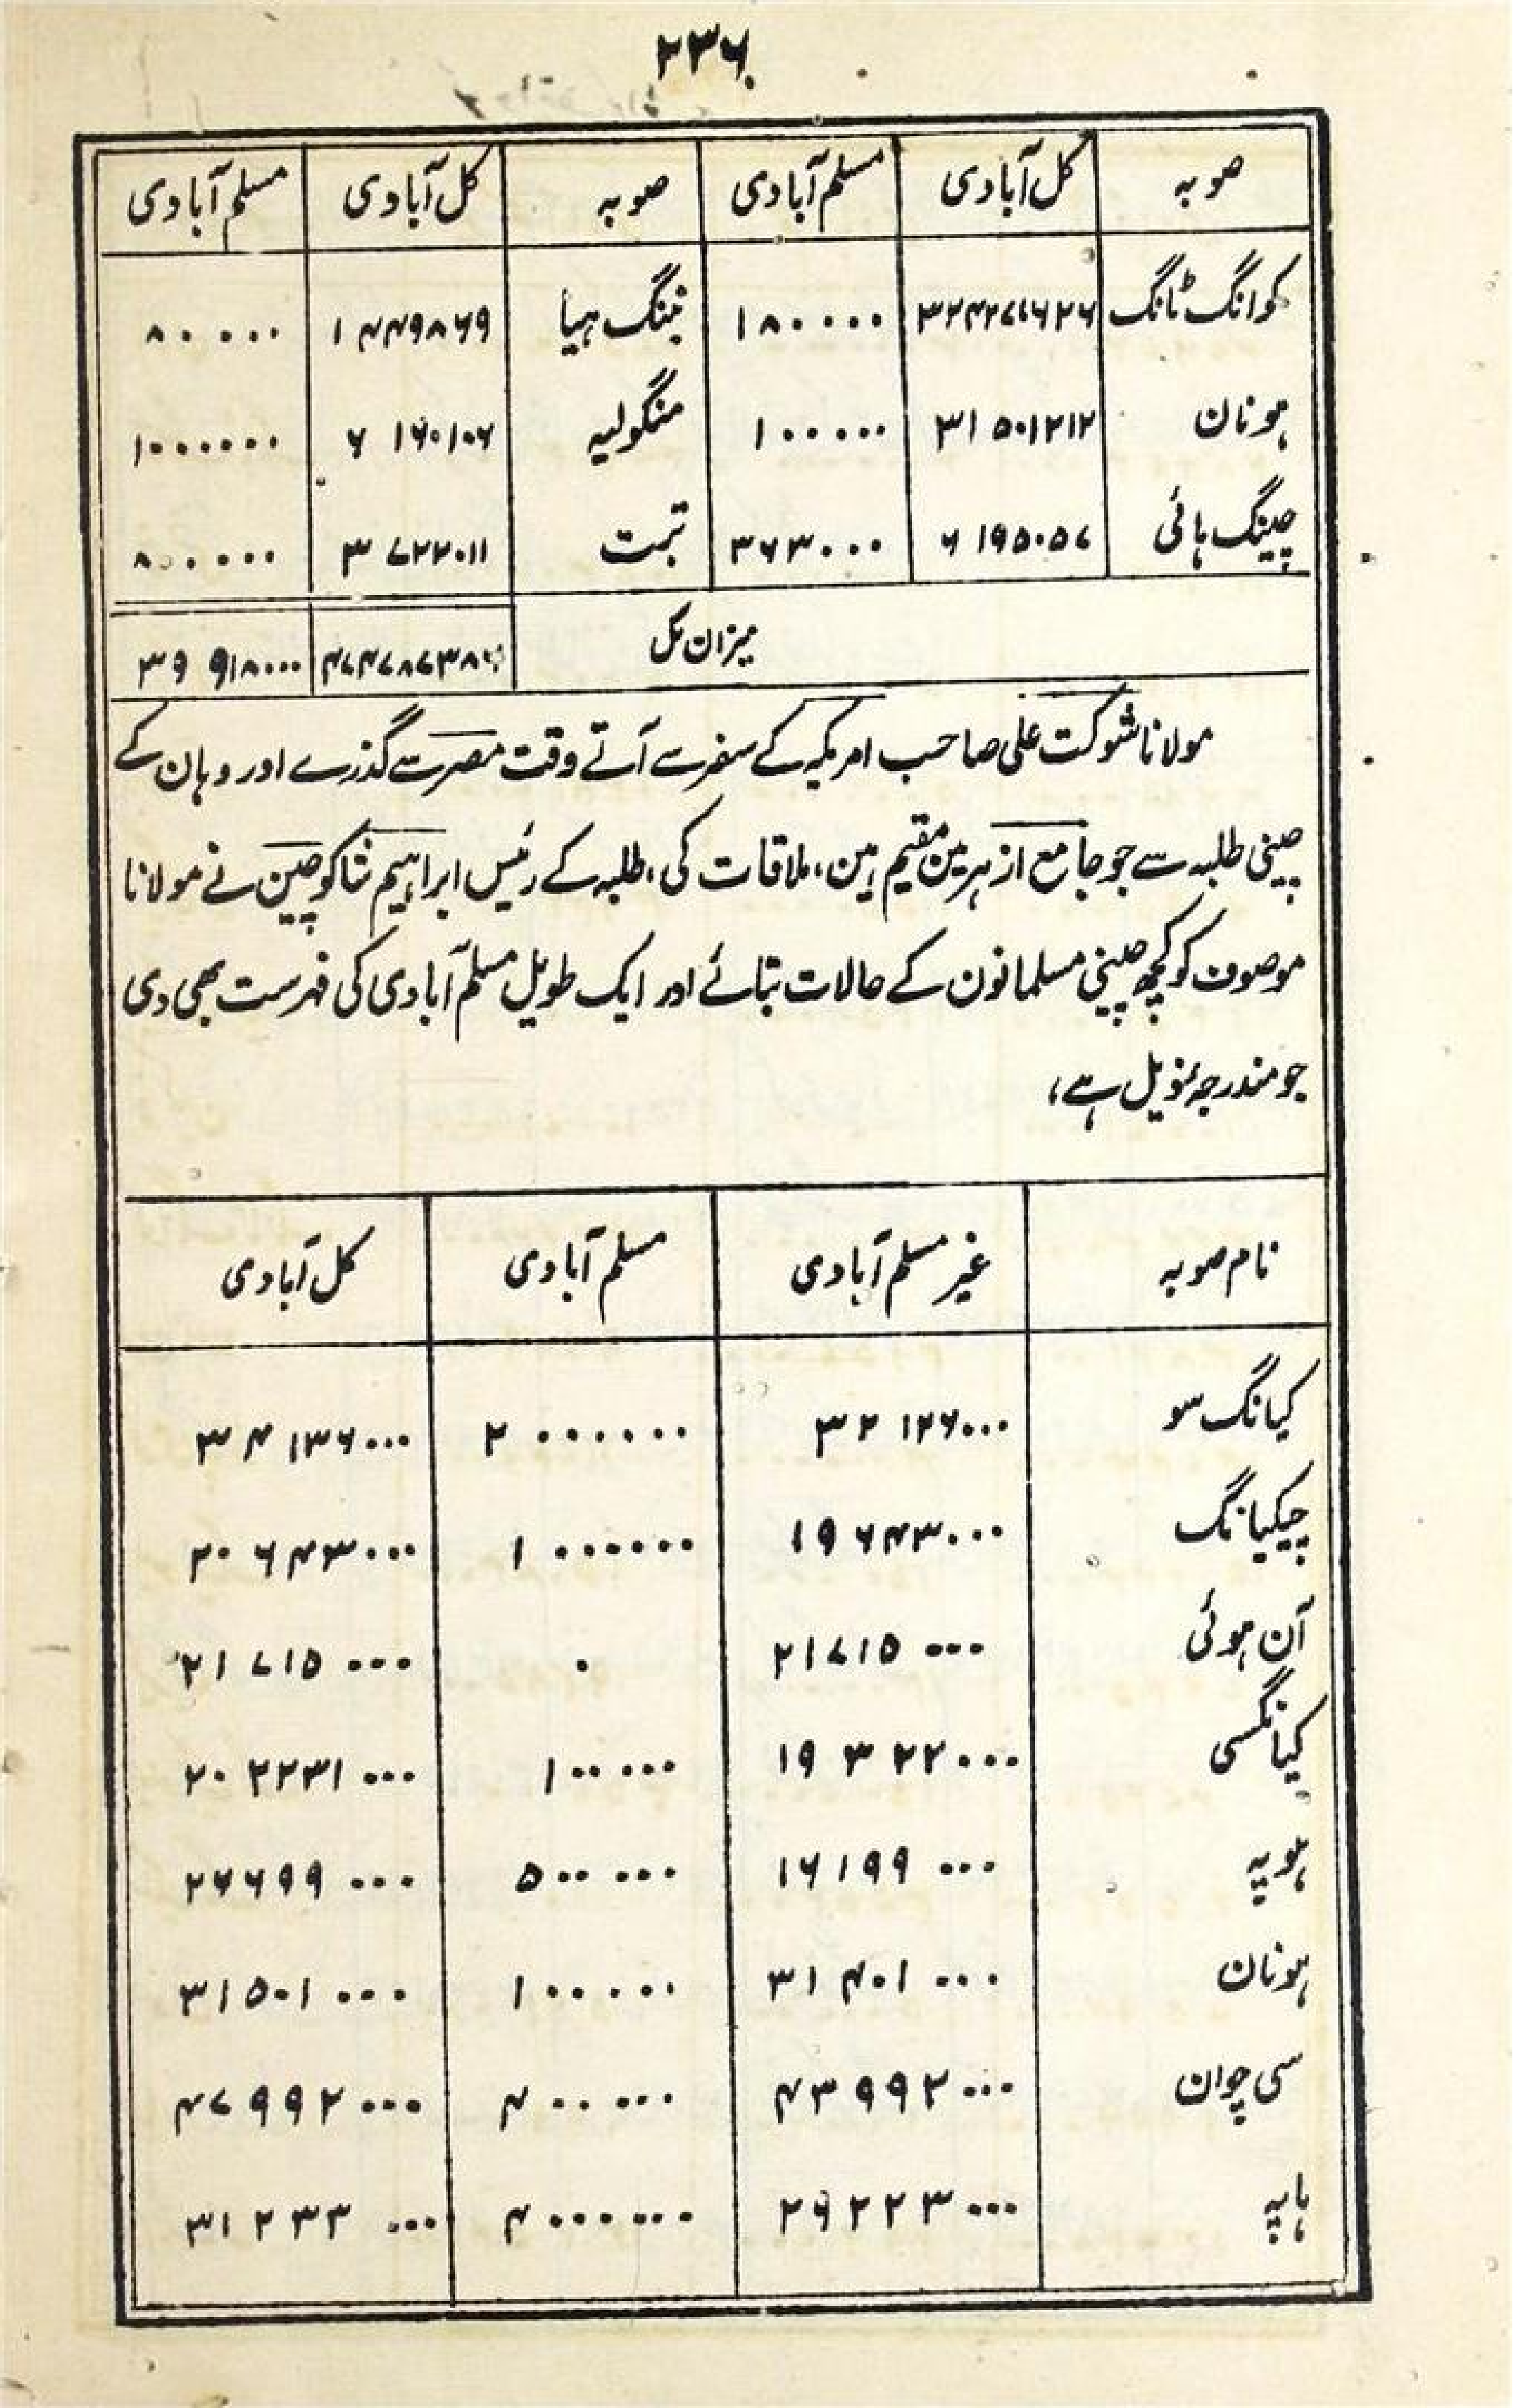 ۲۳۶
صوبہ کل آبادی مسلم آبادی صوبہ کل آبادی مسلم آبادی
کوانگ ٹانگ ۳۲۴۲۷۷۶۲۶ ۱۸۰۰۰۰ ننگ ہیا ۱۴۴۹۸۶۹ ۸۰۰۰۰
ہونان ۳۱۵۰۱۲۱۲ ۱۰۰۰۰۰ منگولیہ ۶۱۶۰۱۰۶ ۱۰۰۰۰۰۰
چینگ ہائی ۶۱۹۵۰۵۷ ۳۶۳۰۰۰ تبت ۳۷۲۲۰۱۱ ۸۰۰۰۰۰
میزان کل ۴۷۴۷۸۷۳۸۶ ۳۹۹۱۸۰۰۰
مولانا شوکت علی صاحب امریکہ کے سفر سے آتے وقت مصر سے گذرے اور وہان کے
چینی طلبہ سے جو جامع ازہر مین مقیم ہین، ملاقات کی، طلبہ کے رئیس ابراہیم شاکوچین نے مولانا
موصوف کو کچھ چینی مسلمانون کے حالات بتائے اور ایک طویل مسلم آبادی کی فہرست بھی دی
جو مندرجہ ذیل ہے،
نام صوبہ غیر مسلم آبادی مسلم آبادی کل آبادی
کیانگ سو ۳۲۱۲۶۰۰۰ ۲۰۰۰۰۰۰ ۳۴۱۳۶۰۰۰
چیکیانگ ۱۹۶۴۳۰۰۰ ۱۰۰۰۰۰۰ ۲۰۶۴۳۰۰۰
آن ہوئی ۲۱۷۱۵۰۰۰ ۰ ۲۱۷۱۵۰۰۰
کیانگسی ۱۹۳۲۲۰۰۰ ۱۰۰۰۰۰ ۲۰۲۲۳۱۰۰۰
ہوپہ ۱۶۱۹۹۰۰۰ ۵۰۰۰۰۰ ۲۶۶۹۹۰۰۰
ہونان ۳۱۴۰۱۰۰۰ ۱۰۰۰۰۰ ۳۱۵۰۱۰۰۰
سی چوان ۴۳۹۹۲۰۰۰ ۴۰۰۰۰۰ ۴۷۹۹۲۰۰۰
ہاپہ ۲۶۲۲۳۰۰۰ ۴۰۰۰۰۰۰ ۳۱۲۳۳۰۰۰